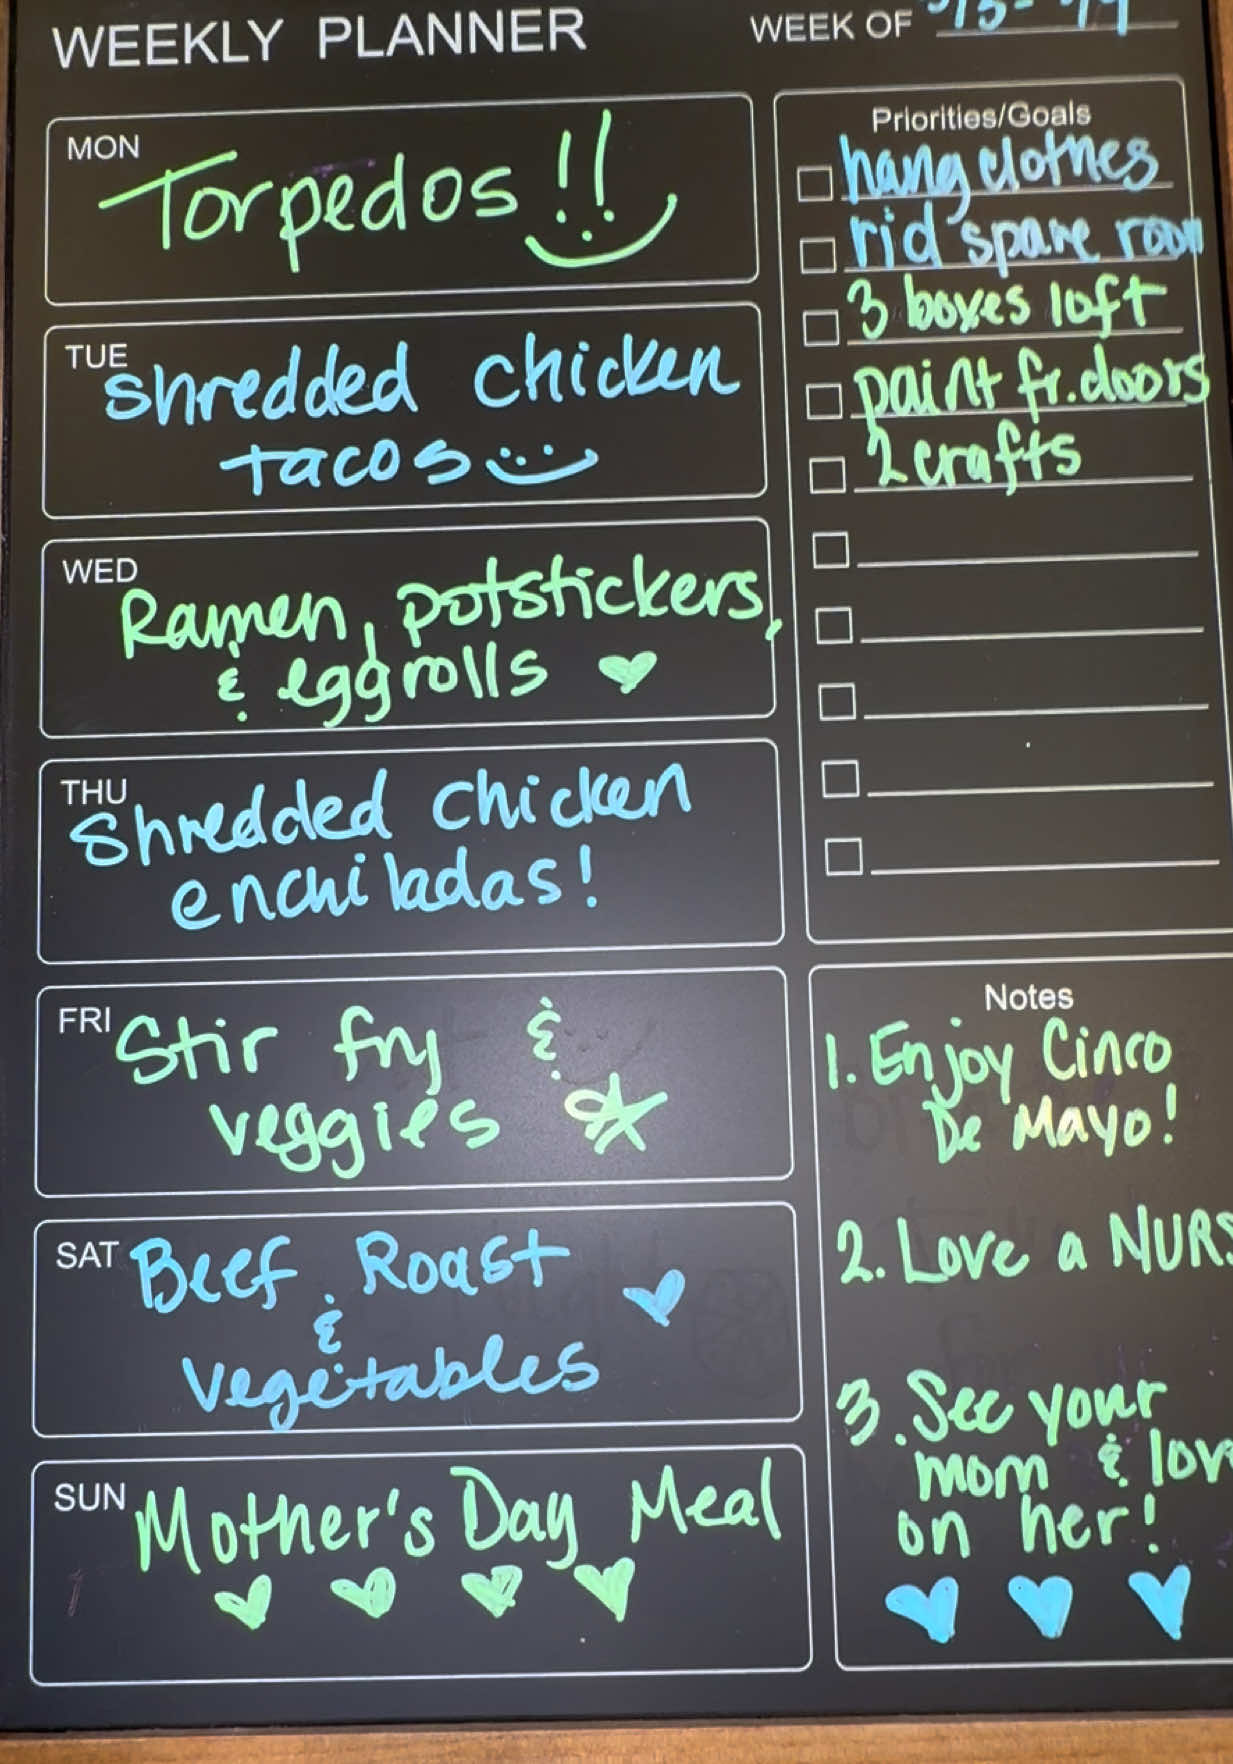 WEEKLY PLANNER
WEEK OF
MON
Torpedos!!
TUE
shredded chicken
tacos
WED
Ramen, potstickers,
& eggrolls
THU
Shredded chicken
enchiladas!
FRI
Stir fry &
veggies
SAT
Beef Roast
&
Vegetables
SUN
Mother's Day Meal
Priorities/Goals
hang clothes
rid spare room
3 boxes loft
paint fr. doors
2 crafts
Notes
1. Enjoy Cinco
De Mayo!
2. Love a NURS
3. See your
mom & lov
on her!